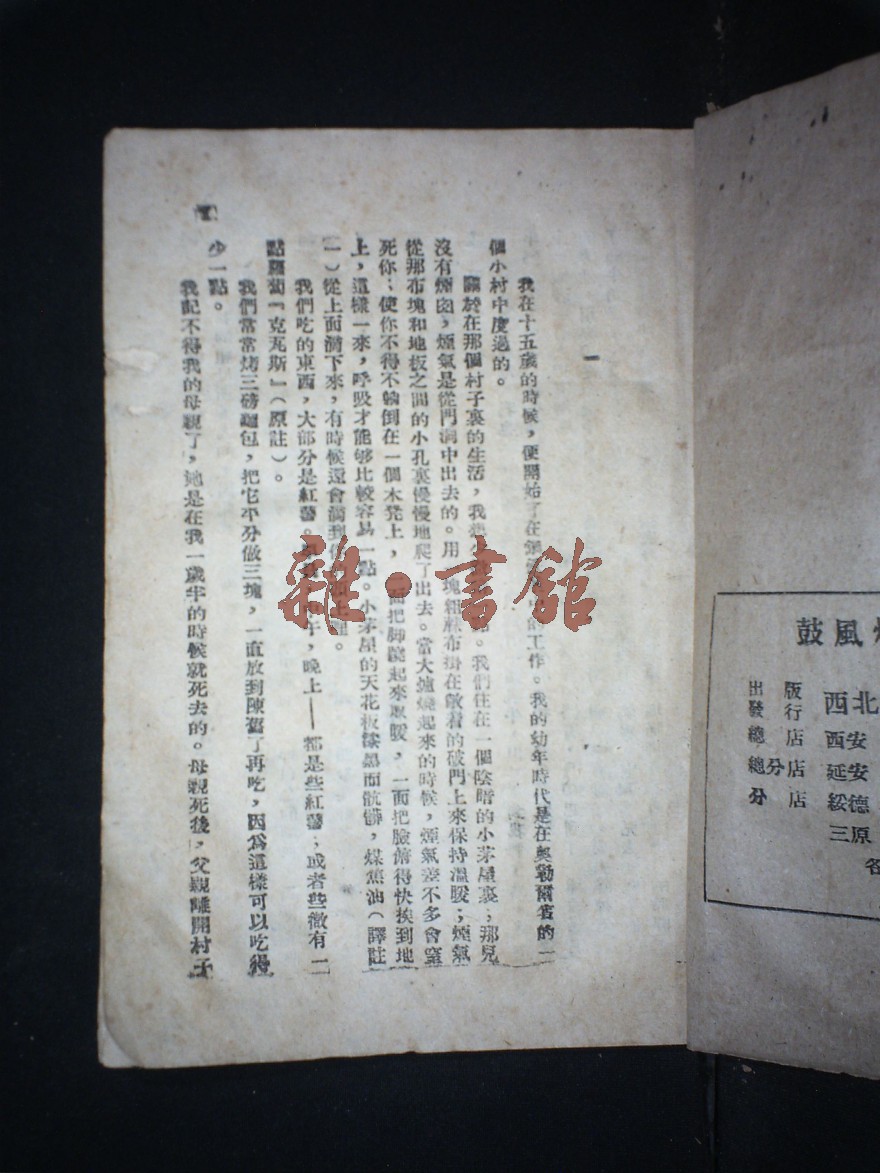 一
我在十五歲的時候，便開始了在
的工作。我的幼年時代是在奧勒爾省的一
個小村中度過的。
關於在那個村子裏的生活，我
我們住在一個陰暗的小茅屋裏；那兒
沒有煙囪，煙氣是從門洞中出去的。用一塊粗麻布掛在敞着的破門上來保持溫暖；煙氣
從那布塊和地板之間的小孔裏慢慢地爬了出去。當大爐燒起來的時候，煙氣差不多會窒
死你；使你不得不躺倒在一個木凳上，一面把脚蹺起來取暖，一面把臉俯得快挨到地
上，這樣一來，呼吸才能够比較容易一點。小茅屋的天花板漆黑而骯髒，煤焦油（譯註
一）從上面滴下來，有時候還會滴到你
我們吃的東西，大部分是紅薯。
晚上——都是些紅薯；或者些微有一
點蘿蔔「克瓦斯」（原註）。
我們常常烤三磅麵包，把它平分做三塊，一直放到陳舊了再吃，因爲這樣可以吃得
少一點。
我記不得我的母親了，她是在我一歲半的時候就死去的。母親死後，父親離開村子
雜·書館
鼓風
出版
發行
總店
總分店
分店
西北
西安
延安
綏德
三原
各